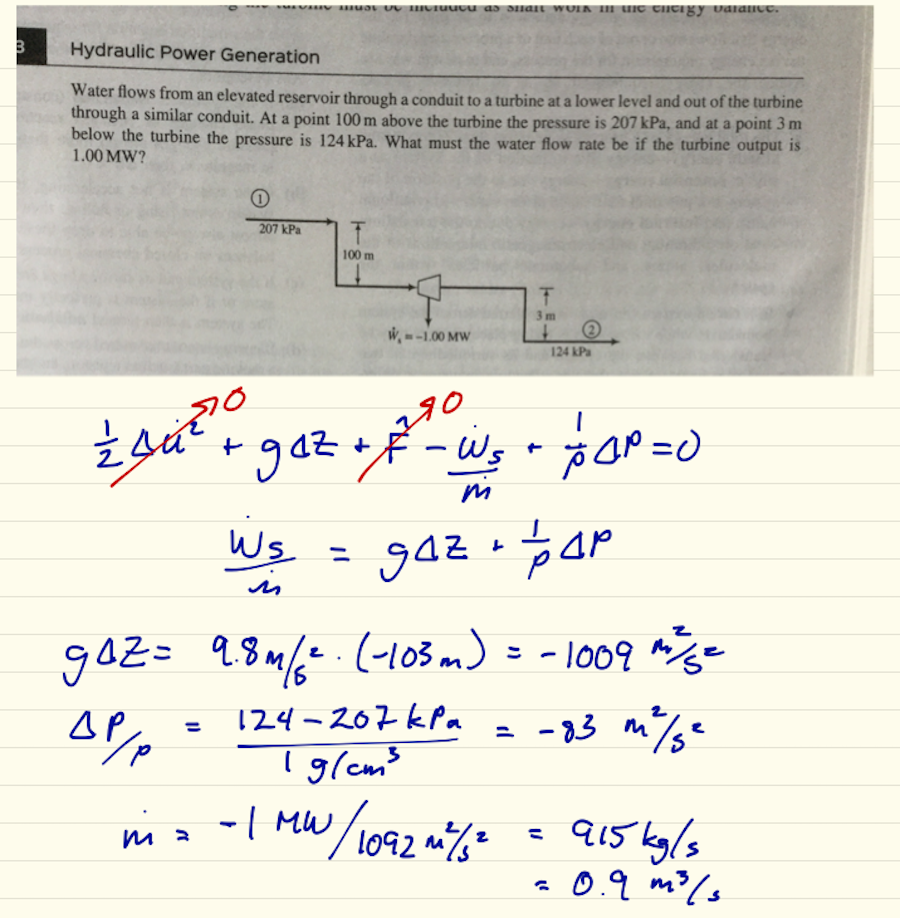 must be included as shaft work in the energy balance.
3 Hydraulic Power Generation
Water flows from an elevated reservoir through a conduit to a turbine at a lower level and out of the turbine
through a similar conduit. At a point 100 m above the turbine the pressure is 207 kPa, and at a point 3 m
below the turbine the pressure is 124 kPa. What must the water flow rate be if the turbine output is
1.00 MW?
①
207 kPa
100 m
3 m
Ẇₛ = -1.00 MW
②
124 kPa
0 0
½ Δu̇² + gΔZ + F̂ - Ẇs/ṁ + 1/ρ ΔP = 0
Ẇs/ṁ = gΔZ + 1/ρ ΔP
gΔZ = 9.8 m/s² · (-103 m) = -1009 m²/s²
ΔP/ρ = 124-207 kPa / 1 g/cm³ = -83 m²/s²
ṁ = -1 MW / 1092 m²/s² = 915 kg/s
= 0.9 m³/s